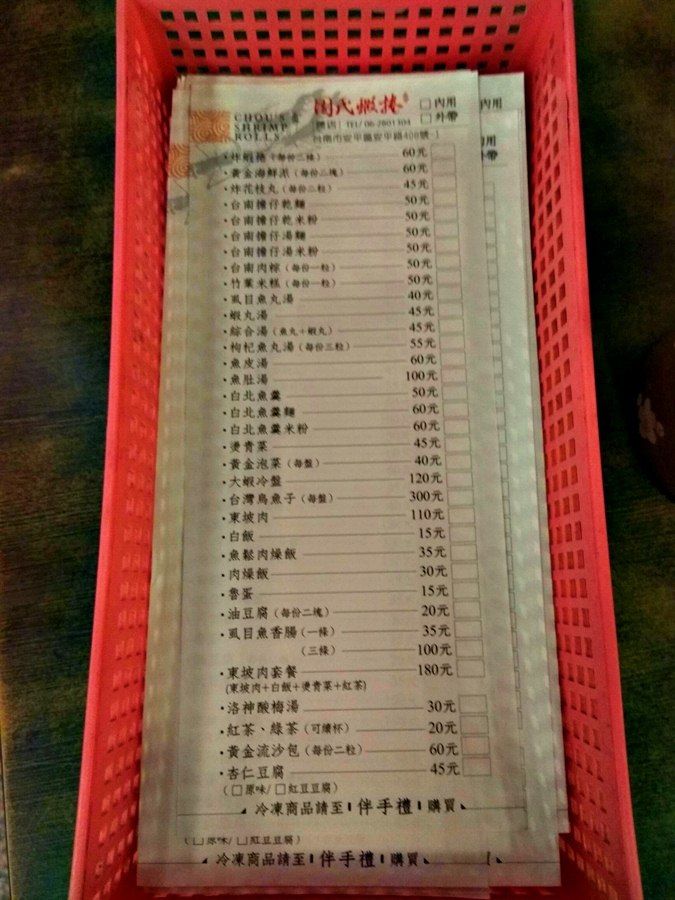 CHOU'S
SHRIMP
ROLLS
周氏蝦捲
□內用
□外帶
總店：TEL/ 06-2801304
台南市安平區安平路408號-1
・炸蝦捲（每份二條） 60元
・黃金海鮮派（每份二塊） 60元
・炸花枝丸（每份二粒） 45元
・台南擔仔乾麵 50元
・台南擔仔乾米粉 50元
・台南擔仔湯麵 50元
・台南擔仔湯米粉 50元
・台南肉粽（每份一粒） 50元
・竹葉米糕（每份一粒） 50元
・虱目魚丸湯 40元
・蝦丸湯 45元
・綜合湯（魚丸＋蝦丸） 45元
・枸杞魚丸湯（每份三粒） 55元
・魚皮湯 60元
・魚肚湯 100元
・白北魚羹 50元
・白北魚羹麵 60元
・白北魚羹米粉 60元
・燙青菜 45元
・黃金泡菜（每盤） 40元
・大蝦冷盤 120元
・台灣烏魚子（每盤） 300元
・東坡肉 110元
・白飯 15元
・魚鬆肉燥飯 35元
・肉燥飯 30元
・魯蛋 15元
・油豆腐（每份二塊） 20元
・虱目魚香腸（一條） 35元
（三條） 100元
・東坡肉套餐 180元
(東坡肉+白飯+燙青菜+紅茶)
・洛神酸梅湯 30元
・紅茶、綠茶（可續杯） 20元
・黃金流沙包（每份二粒） 60元
・杏仁豆腐 45元
（□原味/ □紅豆豆腐）
冷凍商品請至 伴手禮 購買
（□原味/ □紅豆豆腐）
冷凍商品請至 伴手禮 購買
內用
內用
外帶